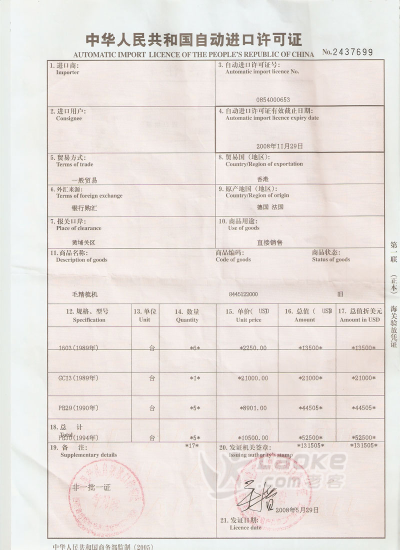 中华人民共和国自动进口许可证
AUTOMATIC IMPORT LICENCE OF THE PEOPLE'S REPUBLIC OF CHINA No. 2437699
1.进口商:
Importer
3.自动进口许可证号:
Automatic import licence No.
0854000653
2.进口用户:
Consignee
4.自动进口许可证有效截止日期:
Automatic import licence expiry date
2008年11月29日
5.贸易方式:
Terms of trade
一般贸易
8.贸易国(地区):
Country/Region of exportation
香港
6.外汇来源:
Terms of foreign exchange
银行购汇
9.原产地国(地区):
Country/Region of origin
德国 法国
7.报关口岸:
Place of clearance
黄埔关区
10.商品用途:
Use of goods
直接销售
11.商品名称:
Description of goods
商品编码:
Code of goods
商品状态:
Status of goods
毛精梳机
旧
12.规格、型号
Specification
13.单位
Unit
14.数量
Quantity
15.单价(USD)
Unit price
16.总值(USD)
Amount
17.总值折美元
Amount in USD
1603(1989年) 台 *6* *2250.00 *13500* *13500*
GC13(1989年) 台 *1* *21000.00 *21000* *21000*
PB29(1990年) 台 *5* *8901.00 *44505* *44505*
18.总计
(1994年) 台 *5* *10500.00 *52500* *52500*
*17* *131505* *131505*
19.备注:
Supplementary details
非一批一证
20.发证机关签章:
Issuing authority's stamp
2008年5月29日
21.发证日期:
Licence date
第一联 (正本) 海关验放凭证
Laoke
.com老客
中华人民共和国商务部监制(2005)